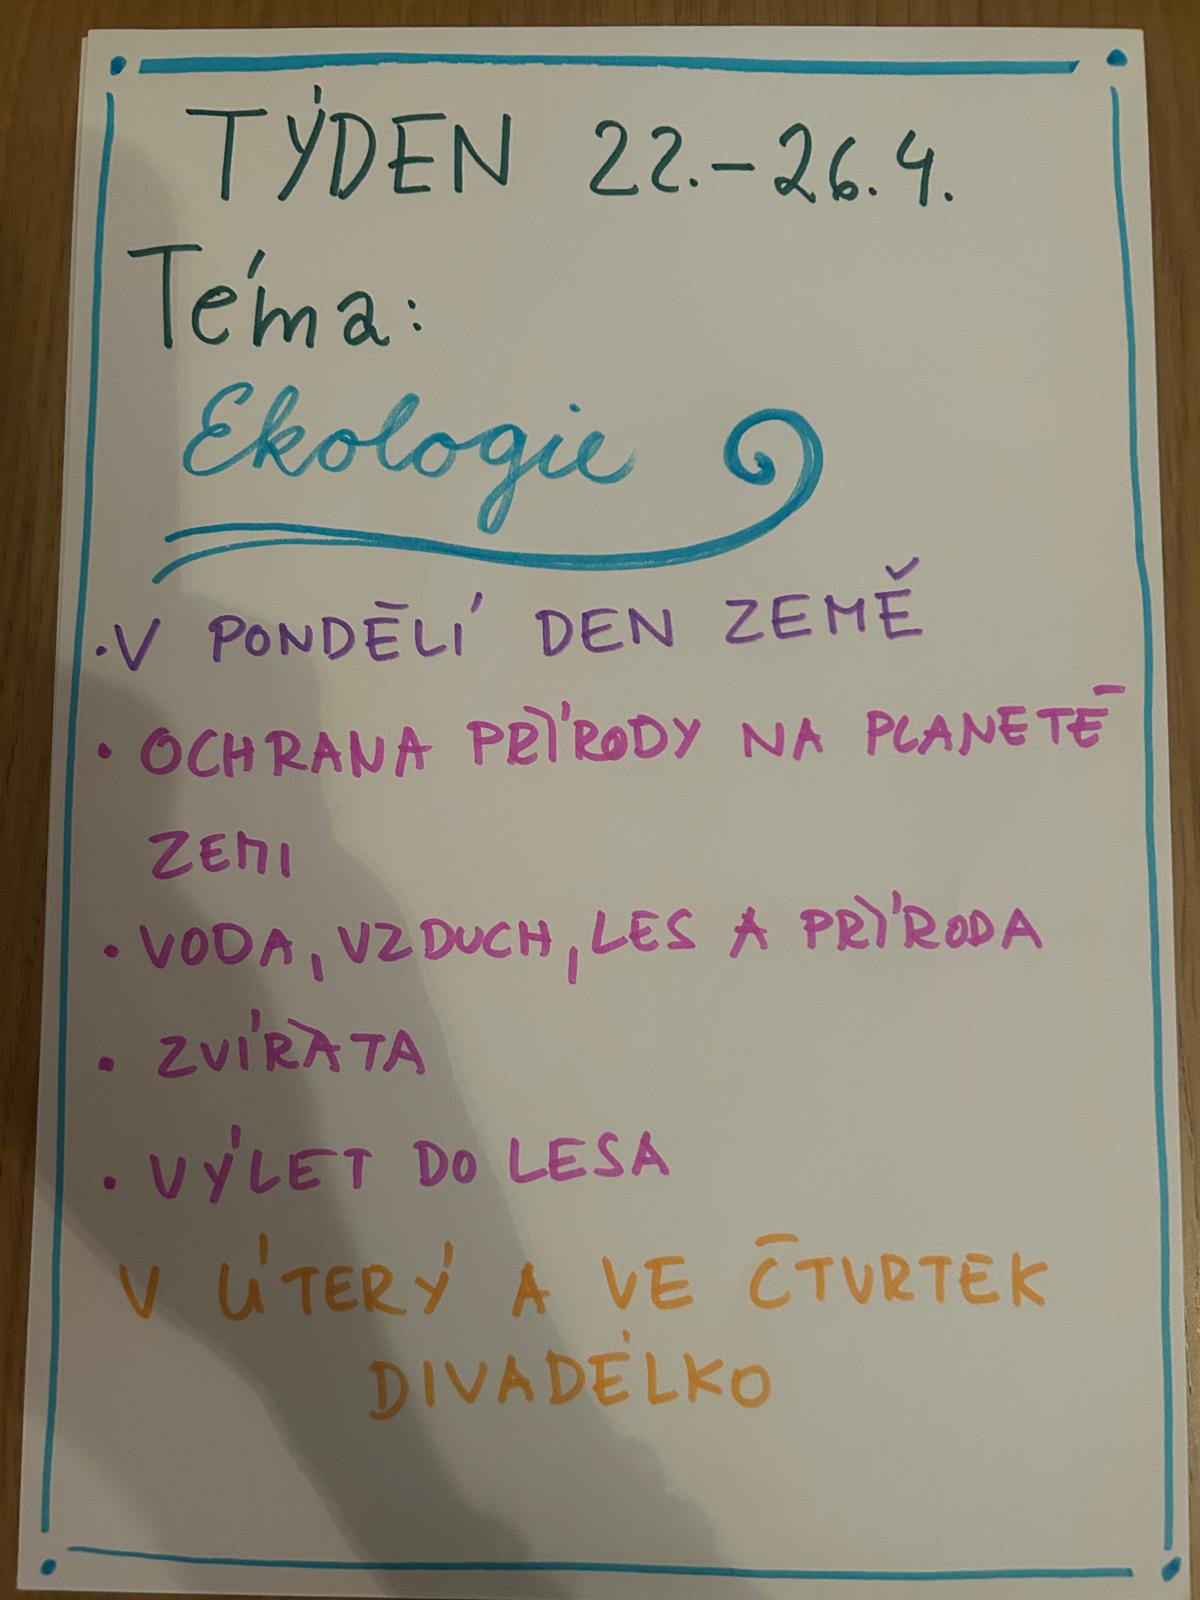 TÝDEN 22.-26.4.
Téma:
Ekologie
• V PONDĚLÍ DEN ZEMĚ
• OCHRANA PŘÍRODY NA PLANETĚ
ZEMI
• VODA, VZDUCH, LES A PŘÍRODA
• ZVÍŘATA
• VÝLET DO LESA
V ÚTERÝ A VE ČTVRTEK
DIVADÉLKO